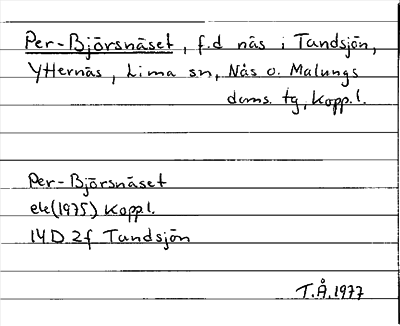 Per-Björsnäset, f.d näs i Tandsjön,
Ytternäs, Lima sn, Nås o. Malungs
doms. tg, Kopp.l.
Per-Björsnäset
ek(1975) Kopp.l.
14D 2f Tandsjön
T.Å.1977